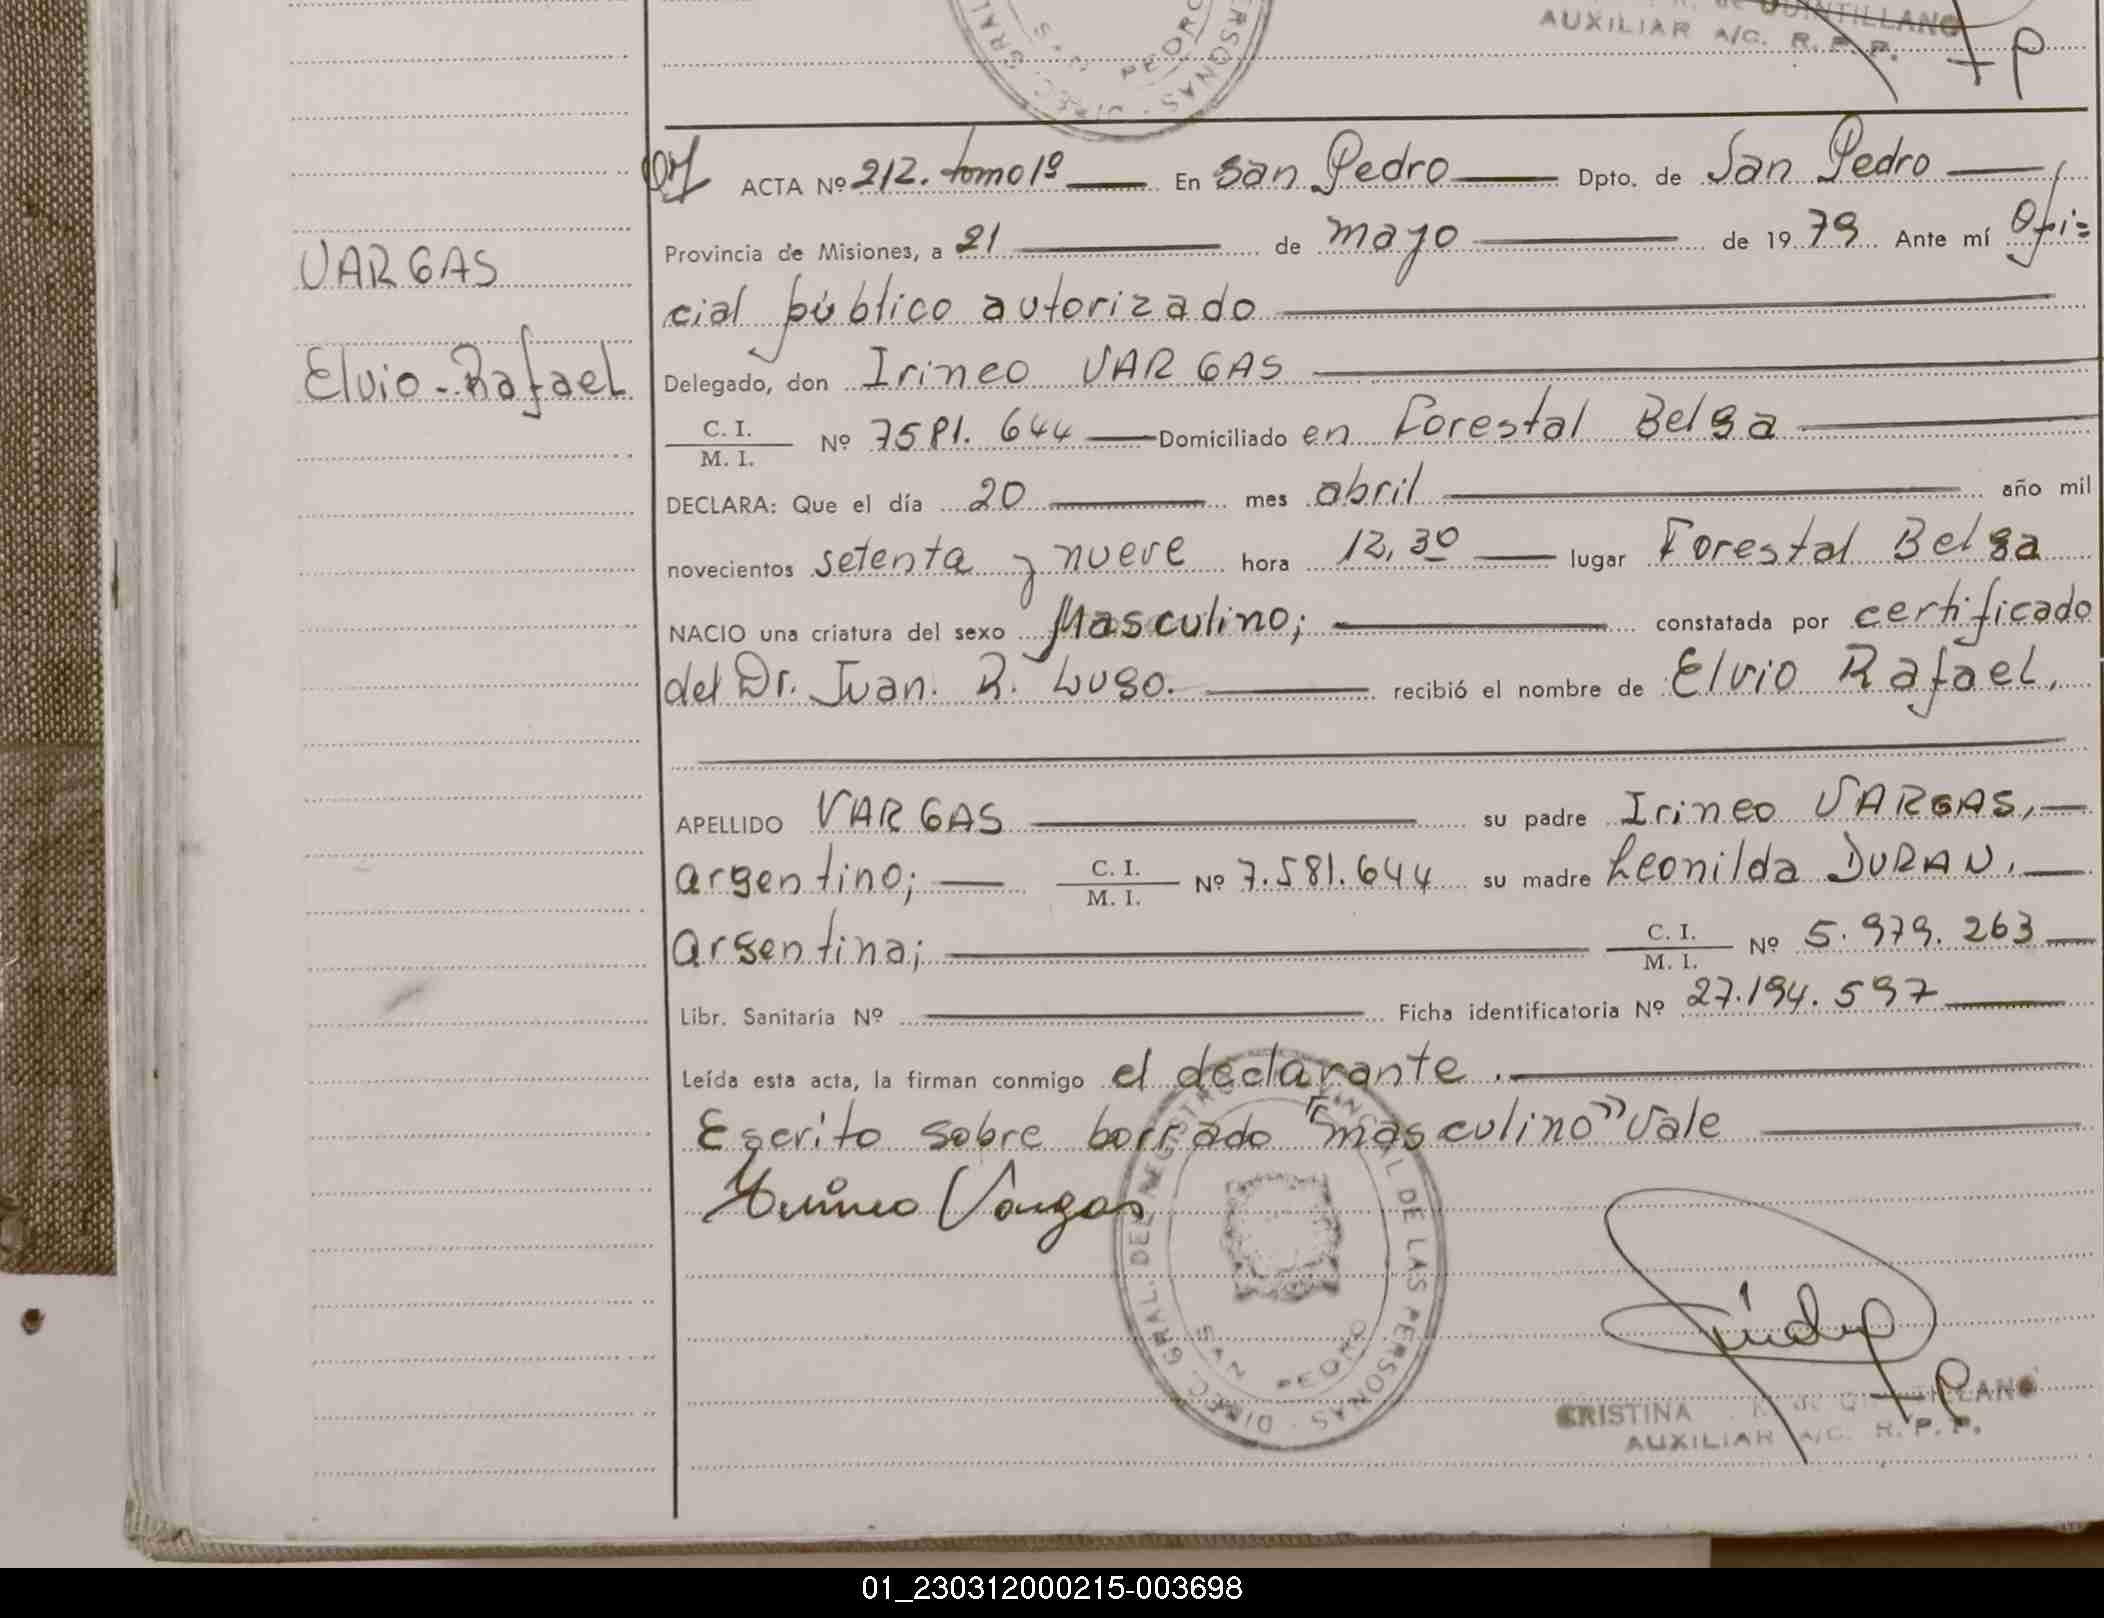 QUINTILLANO
AUXILIAR A/C. R. P. P.
PERSONAS - DIREC. GRAL.
PEDRO
ACTA Nº 212. tomo 1º En San Pedro Dpto. de San Pedro
Provincia de Misiones, a 21 de mayo de 1979 Ante mí Ofi=
cial público autorizado
VARGAS
Elvio-Rafael
Delegado, don Irineo VARGAS
C. I.
M. I.
Nº 7581.644 Domiciliado en Forestal Belga
DECLARA: Que el día 20 mes abril año mil
novecientos setenta y nueve hora 12,30 lugar Forestal Belga
NACIO una criatura del sexo Masculino; constatada por certificado
del Dr. Juan. R. Lugo. recibió el nombre de Elvio Rafael,
APELLIDO VARGAS su padre Irineo VARGAS,
argentino; C. I. M. I. Nº 7.581.644 su madre Leonilda DURAN,
argentina; C. I. M. I. Nº 5.979.263
Libr. Sanitaria Nº Ficha identificatoria Nº 27.194.597
Leída esta acta, la firman conmigo el declarante.
Escrito sobre borrado "masculino" Vale
Irineo Vargas
DIREC. GRAL. DEL REGISTRO PROVINCIAL DE LAS PERSONAS
SAN PEDRO
CRISTINA
AUXILIAR A/C. R. P. P.
01_230312000215-003698